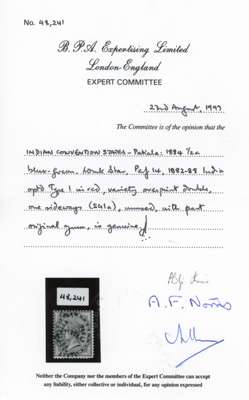 No. 48,241
B. P. A. Expertising Limited
London-England
EXPERT COMMITTEE
22nd August, 1997
The Committee is of the opinion that the
INDIAN CONVENTION STATES - Patiala: 1884 1/2a
blue-green. wmk Star, Perf 14, 1882-88 India
optd Type 1 in red, variety overprint double,
one sideways (2a), unused, with part
original gum, is genuine.
48,241
A. F. Norris
Neither the Company nor the members of the Expert Committee can accept
any liability, either collective or individual, for any opinion expressed